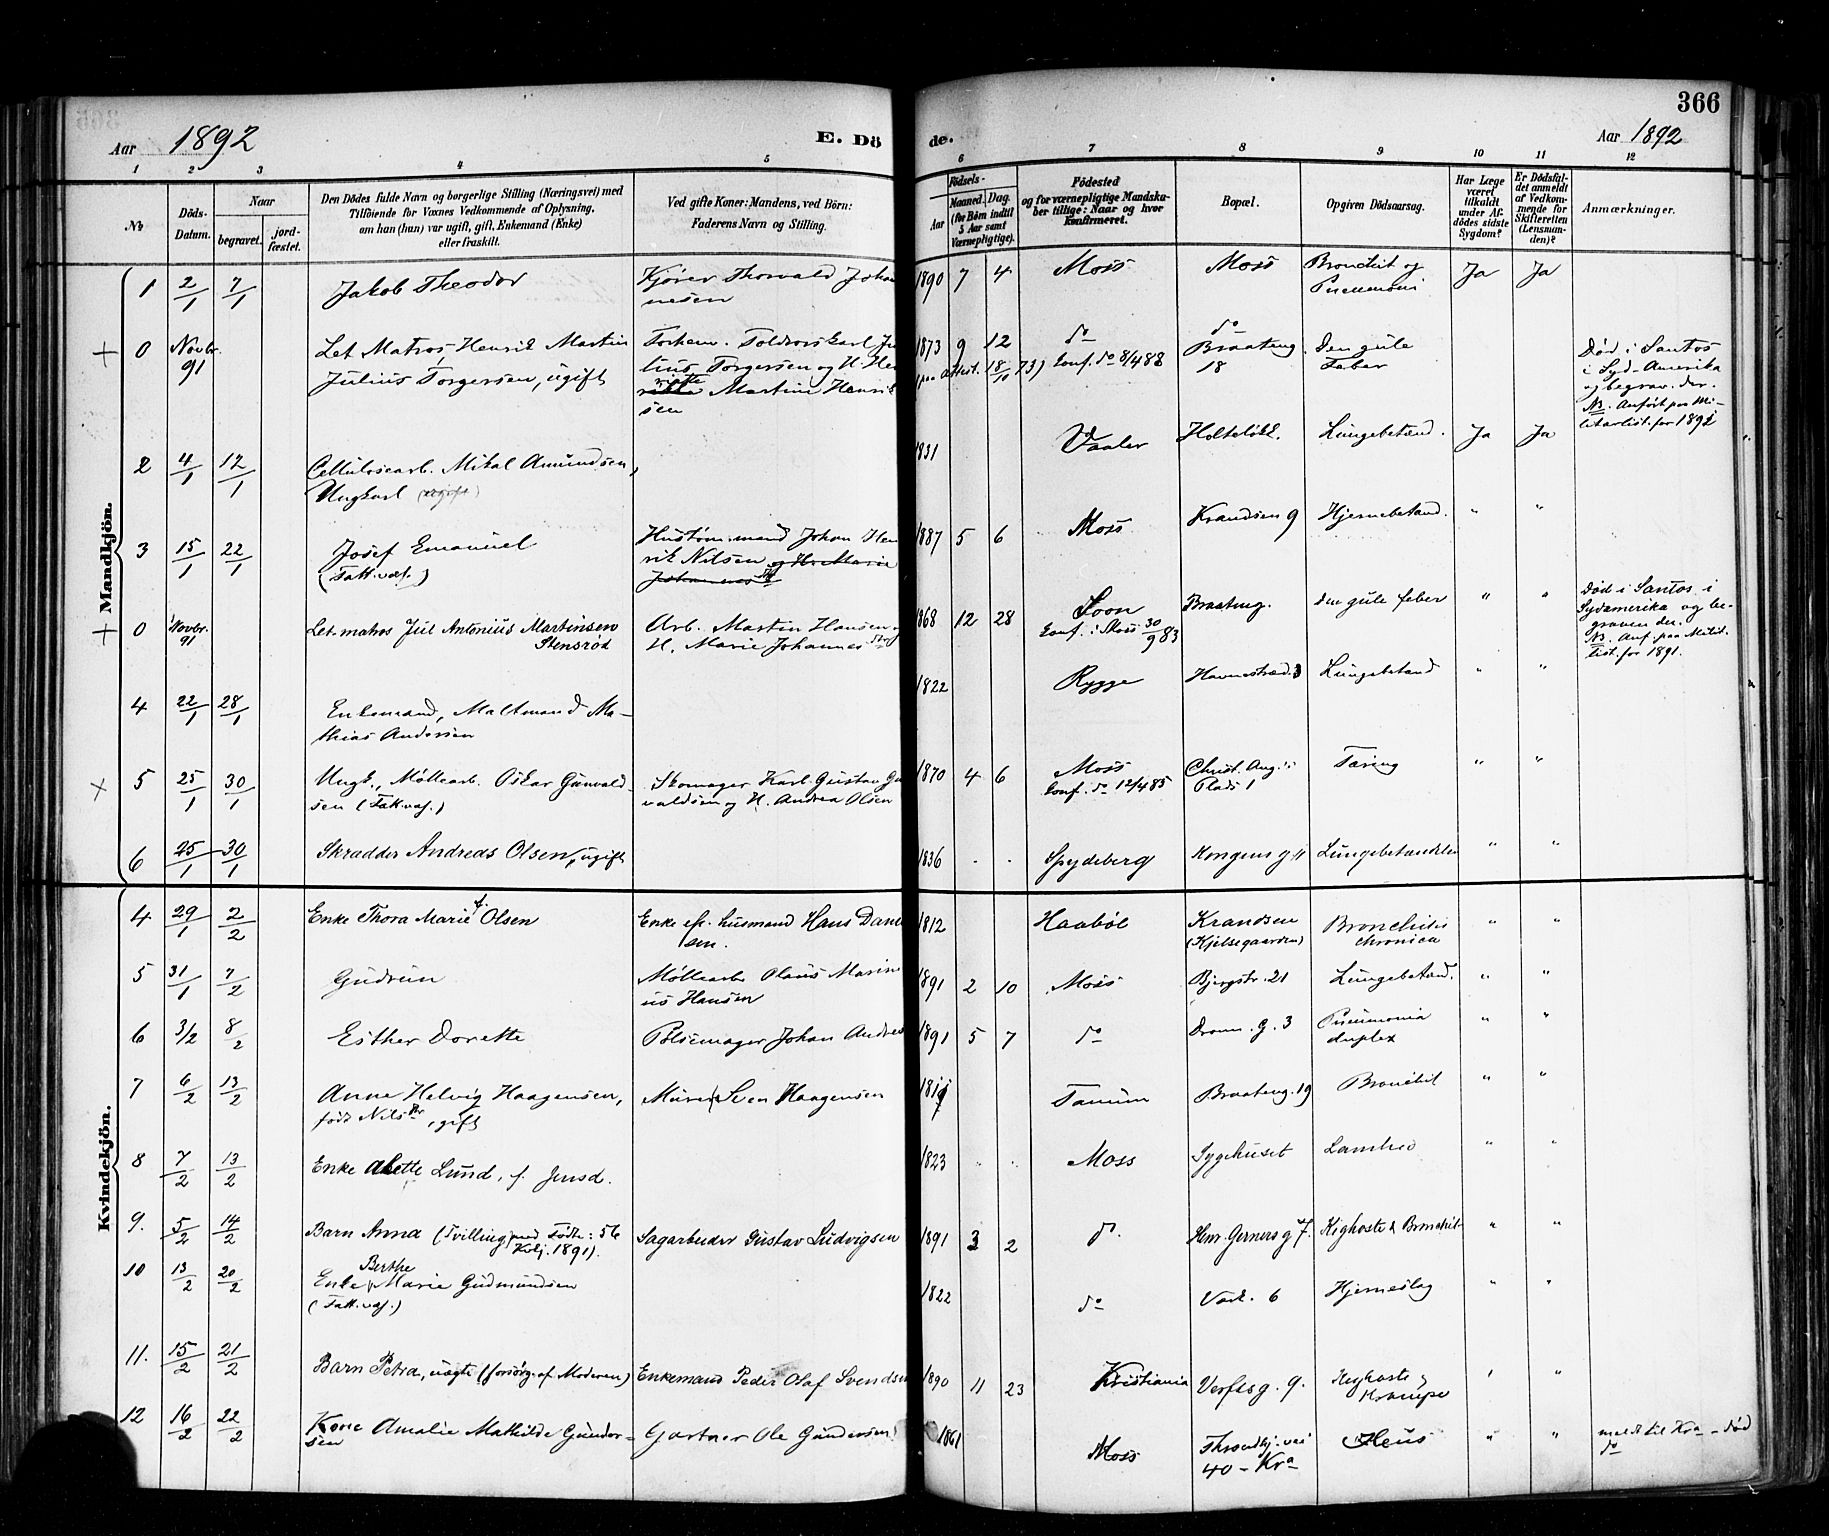 366
Aar 1892
E. Dö
de.
Aar 1892
1 2 3 4 5 6 7 8 9 10 11 12
No
Döds-Datum.
Naar
begravet.
jord-fæstet.
Den Dödes fulde Navn og borgerlige Stilling (Næringsvei) med
Tilföiende for Voxnes Vedkommende af Oplysning,
om han (hun) var ugift, gift, Enkemand (Enke)
eller fraskilt.
Ved gifte Koner: Mandens, ved Börn:
Faderens Navn og Stilling.
Födsels-
Aar
Maaned. Dag.
(for Börn indtil
5 Aar samt
Værnepligtige).
Födested
og for værnepligtige Mandska-
ber tillige: Naar og hvor
konfirmeret.
Bopæl.
Opgiven Dödsaarsag.
Har Læge
været
tilkaldt
under Af-
dödes sidste
Sygdom?
Er Dödsfal-
det anmeldt
af Vedkom-
mende for
Skifteretten
(Lensman-
den)?
Anmærkninger.
Mandkjön.
1 2/1 7/1 Jakob Theodor Kjører Thorvald Johan
nesen 1890 7 4 Moss Moss Bronchit og
Pneumoni Ja Ja
+ 0 Novbr. 91 Let Matros Henrik Martin
Julius Torgersen, ugift Forhen. Toldvorskarl Ju
lius Torgersen og H. Hen
Martine Henrik
sen 1873 9 12 do
(paa attest. 18/10 73) Conf. do 8/4 88 do
Braateng.
18 Den gule
Feber Død i Santos
i Syd-Amerika
og begrav. der.
NB. Anført paa Mi-
litærlist. for 1892
2 4/1 12/1 Cellulosearb. Mikal Amundsen,
Ungkarl (ugift) 1831 Vaaler Holteløkk. Lungebetænd. Ja Ja
3 15/1 22/1 Josef Emanuel
(Fatt.væs.) Hustøm.mand Johan Hen
rik Nilsen og H. Marie
Johannesdtr 1887 5 6 Moss Krandsen 9 Hjernebetænd. " "
+ 0 Novbr. 91 Let.matros Jul Antonius Martinsen
Stensrød Arb. Martin Hansen og
H. Marie Johannesdtr 1868 12 28 Soon
Conf. i Moss 30/9 83 Braateng. den gule feber " " Død i Santos i
Sydamerika og be-
graven der.
NB. Anf. paa Milit.
list. for 1891.
4 22/1 28/1 Enkemand, Maltmand Ma-
thias Andersen 1822 Rygge Havnestræd. 3 Lungebetænd " "
+ 5 25/1 30/1 Ungk., Møllearb. Oskar Gunvald-
sen (Fatt.væs.) Skomager Karl Gustav Gu
valdsen og H. Andrea Olsen 1870 4 6 Moss
Conf. do 12/4 85 Christ. Aug.s
Plads 1 Tæring " "
6 25/1 30/1 Skrædder Andreas Olsen, ugift 1836 - - Spydeberg Kongens g. 11 Lungebetændelse " "
Kvindekjön.
4 29/1 2/2 Enke Thora Marie Olsen Enke eft. husmand Hans Dani
sen. 1812 Haabøl Krandsen
(Kjelsegaarden) Bronchitis
chronica " "
5 31/1 7/2 Gudrun Møllearb. Olaus Marin
us Hansen 1891 2 10 Moss Bjergstr. 21 Lungebetænd. " "
6 3/2 8/2 Esther Dorette Pølsemager Johan Andrea 1891 5 7 do Dronn. G. 3 Pneumonia
duplex " "
7 6/2 13/2 Anne Helvig Haagensen,
född Nilsdtr, gift Murer Sven Haagensen Tanum Braateng. 19 Bronchit " "
8 7/2 13/2 Enke Alette Lund, f. Jensd. 1823 " " Moss Sygehuset Lamhed " "
9. 5/2 14/2 Barn Anna (Tvilling med Födte: 56
Kvkj. 1891). Sagarbeider Gustav Ludvigsen 1891 3 2 do. Henr. Gerners g. 7. Kighoste & Bronchit " "
10 13/2 20/2 Berthe
Enke Marie Gudmundsen
(Fatt.væs.) 1822 do Værk. 6 Hjerneslag " "
11. 15/2 21/2 Barn Petra, uægte (forsörg. af Moderen) Enkemand Peder Olaf Svendsen 1890 11 23 Kristiania Verftsg. 9. Kighoste &
Krampe " "
12 16/2 22/2 Kone Amalie Mathilde Gunder-
sen Gartner Ole Gundersen 1861 Moss Throndhj.vei
40 - Kra Ileus " " meldt til Kra - død
do